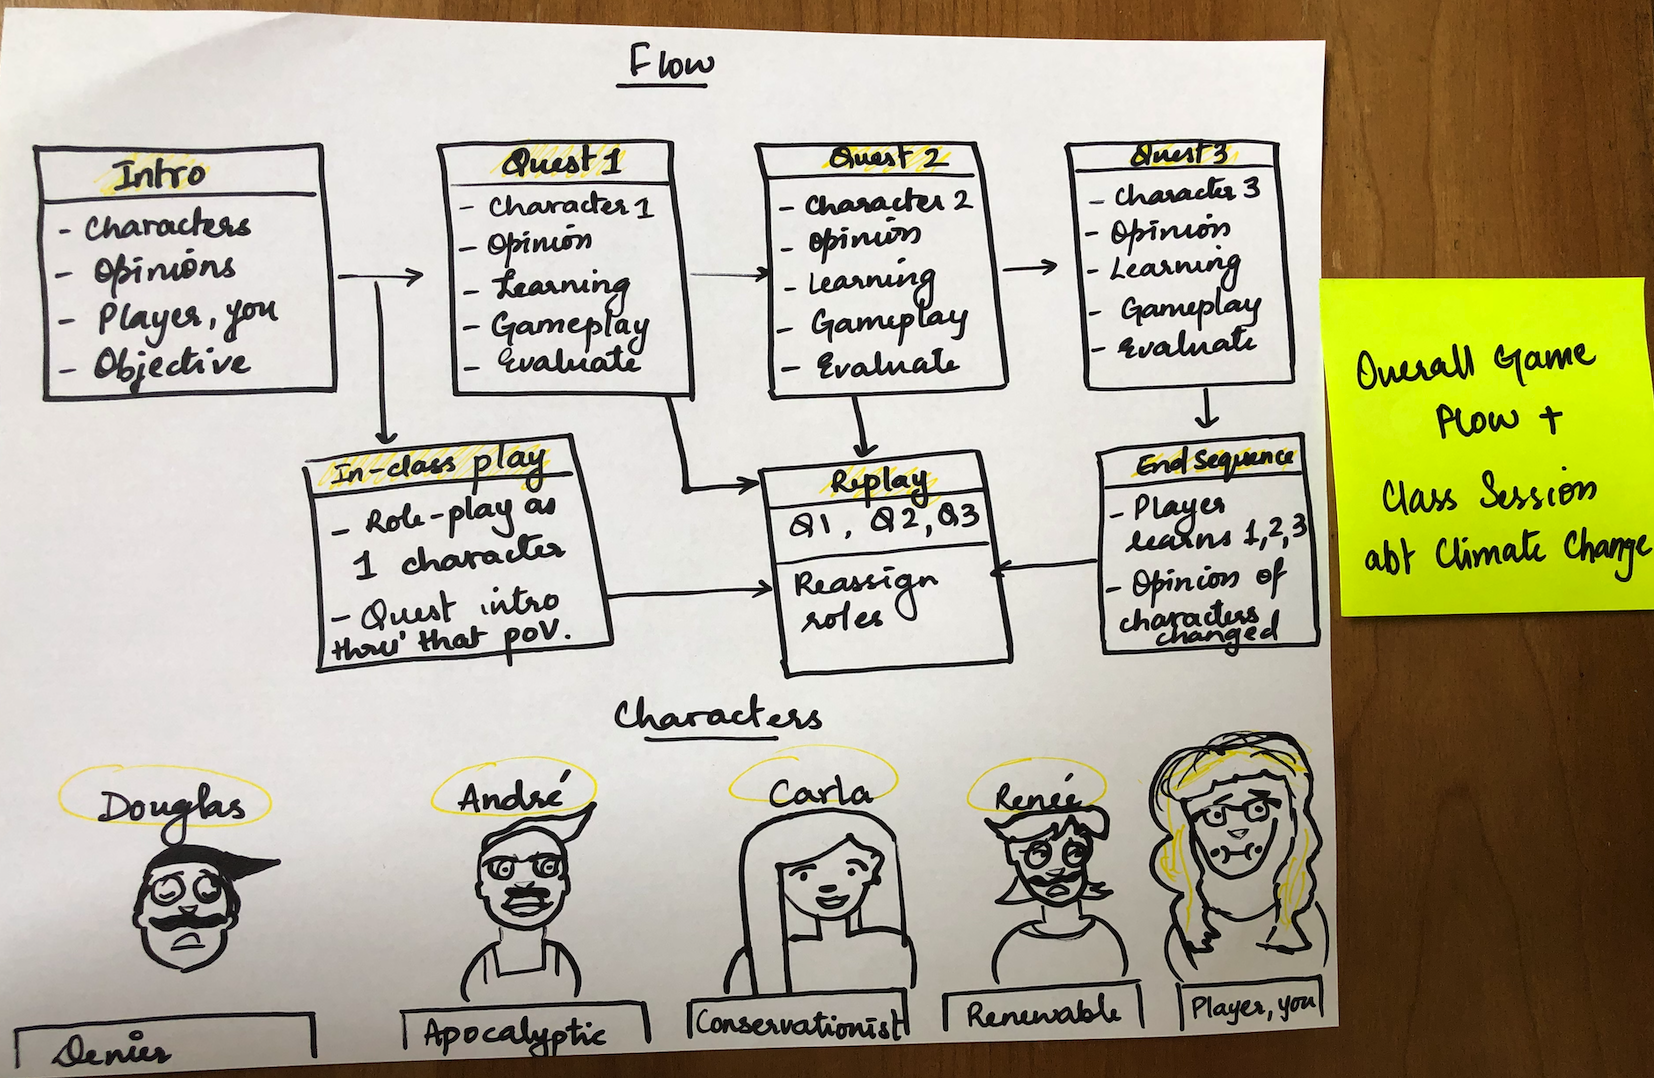 Flow
Intro
- Characters
- Opinions
- Player, you
- Objective
Quest 1
- Character 1
- Opinion
- Learning
- Gameplay
- Evaluate
Quest 2
- Character 2
- Opinion
- Learning
- Gameplay
- Evaluate
Quest 3
- Character 3
- Opinion
- Learning
- Gameplay
- Evaluate
In-class play
- Role-play as
1 character
- Quest intro
thru' that pov.
Replay
Q1, Q2, Q3
Reassign
roles
End Sequence
- Player
learns 1,2,3
- Opinion of
characters
changed
Overall Game
Flow +
Class Session
abt Climate Change
Characters
Douglas
André
Carla
Renée
Denier
Apocalyptic
Conservationist
Renewable
Player, you